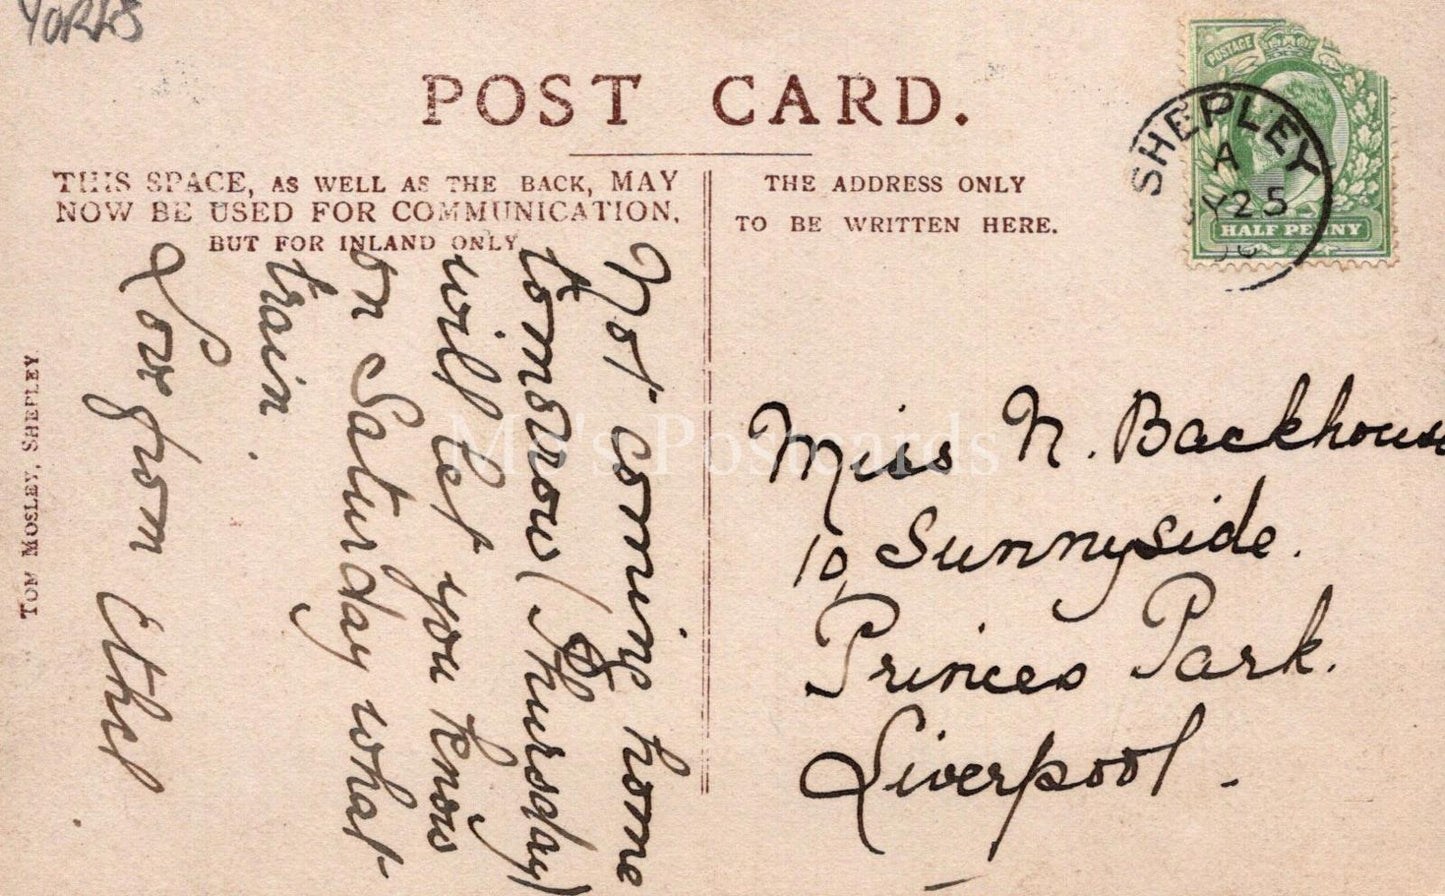 YORKS
POST CARD.
THIS SPACE, AS WELL AS THE BACK, MAY
NOW BE USED FOR COMMUNICATION,
BUT FOR INLAND ONLY.
THE ADDRESS ONLY
TO BE WRITTEN HERE.
POSTAGE
HALF PENNY
SHEPLEY
A
25
Not coming home
tomorrow (Thursday)
will let you know
on Saturday what
train.
Love from Ethel
Miss N. Backhouse
10, Sunnyside.
Princes Park.
Liverpool.
TOM MOSLEY, SHEPLEY
Mo's Postcards